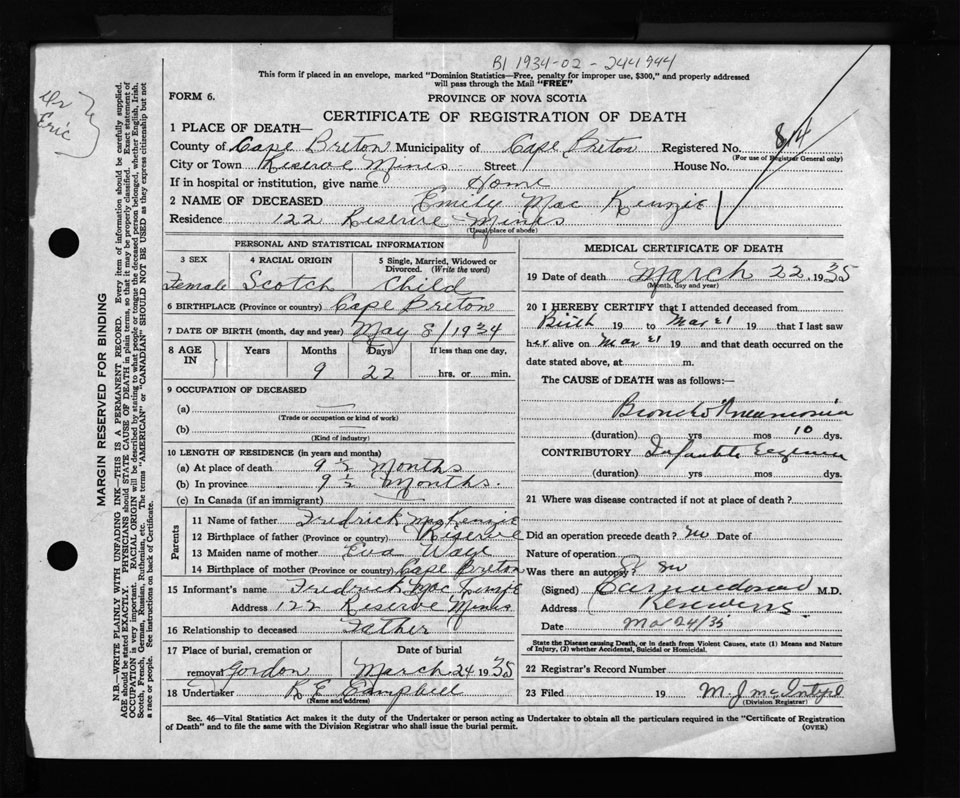 B1 1934-02-244944
This form if placed in an envelope, marked "Dominion Statistics—Free, penalty for improper use, $300," and properly addressed
will pass through the Mail "FREE"
FORM 6.
PROVINCE OF NOVA SCOTIA
CERTIFICATE OF REGISTRATION OF DEATH
Dr
Eric
MARGIN RESERVED FOR BINDING
N.B.—WRITE PLAINLY WITH UNFADING INK—THIS IS A PERMANENT RECORD. Every item of information should be carefully supplied.
AGE should be stated EXACTLY. PHYSICIANS should STATE CAUSE OF DEATH in plain terms, so that it may be properly classified. Exact statement of
OCCUPATION is very important. RACIAL ORIGIN will be described by stating to what people or tongue the deceased person belonged, whether English, Irish,
Scotch, French, German, Russian, Ruthenian, etc. The terms "AMERICAN" or "CANADIAN" SHOULD NOT BE USED as they express citizenship but not
a race or people. See instructions on back of Certificate.
1 PLACE OF DEATH—
County of Cape Breton Municipality of Cape Breton Registered No. 84
(For use of Registrar General only)
City or Town Reserve Mines Street House No.
If in hospital or institution, give name Home
2 NAME OF DECEASED Emily Mac Kenzie
Residence 122 Reserve Mines
(Usual place of abode)
PERSONAL AND STATISTICAL INFORMATION
3 SEX
Female
4 RACIAL ORIGIN
Scotch
5 Single, Married, Widowed or
Divorced. (Write the word)
Child
6 BIRTHPLACE (Province or country) Cape Breton
7 DATE OF BIRTH (month, day and year) May 8/1934
8 AGE IN Years Months Days If less than one day,
9 22 hrs. or min.
9 OCCUPATION OF DECEASED
(a) —
(Trade or occupation or kind of work)
(b) —
(Kind of industry)
10 LENGTH OF RESIDENCE (in years and months)
(a) At place of death 9 ½ Months
(b) In province 9 ½ Months.
(c) In Canada (if an immigrant) —
Parents
11 Name of father Fredrick MacKenzie
12 Birthplace of father (Province or country) Reserve
13 Maiden name of mother Eva
14 Birthplace of mother (Province or country) Cape Breton
15 Informant's name Fredrick Mac Kenzie
Address 122 Reserve Mines
16 Relationship to deceased Father
17 Place of burial, cremation or Date of burial
removal Gordon March 24 1935
18 Undertaker R E Campbell
(Name and address)
MEDICAL CERTIFICATE OF DEATH
19 Date of death March 22, 1935
(Month, day and year)
20 I HEREBY CERTIFY that I attended deceased from
Birth 19 to Mar 21 19 that I last saw
her alive on Mar 21 19 and that death occurred on the
date stated above, at m.
The CAUSE of DEATH was as follows:—
Broncho Pneumonia
(duration) yrs mos 10 dys.
CONTRIBUTORY Infantile Eczema
(duration) yrs mos dys.
21 Where was disease contracted if not at place of death?
Did an operation precede death? no Date of
Nature of operation
Was there an autopsy?
(Signed) M.D.
Address
Date Mar 24/35
State the Disease causing Death, or in death from Violent Causes, state (1) Means and Nature
of Injury, (2) whether Accidental, Suicidal or Homicidal.
22 Registrar's Record Number
23 Filed 19 M. J. McIntyre
(Division Registrar)
Sec. 46—Vital Statistics Act makes it the duty of the Undertaker or person acting as Undertaker to obtain all the particulars required in the "Certificate of Registration
of Death" and to file the same with the Division Registrar who shall issue the burial permit.
(OVER)